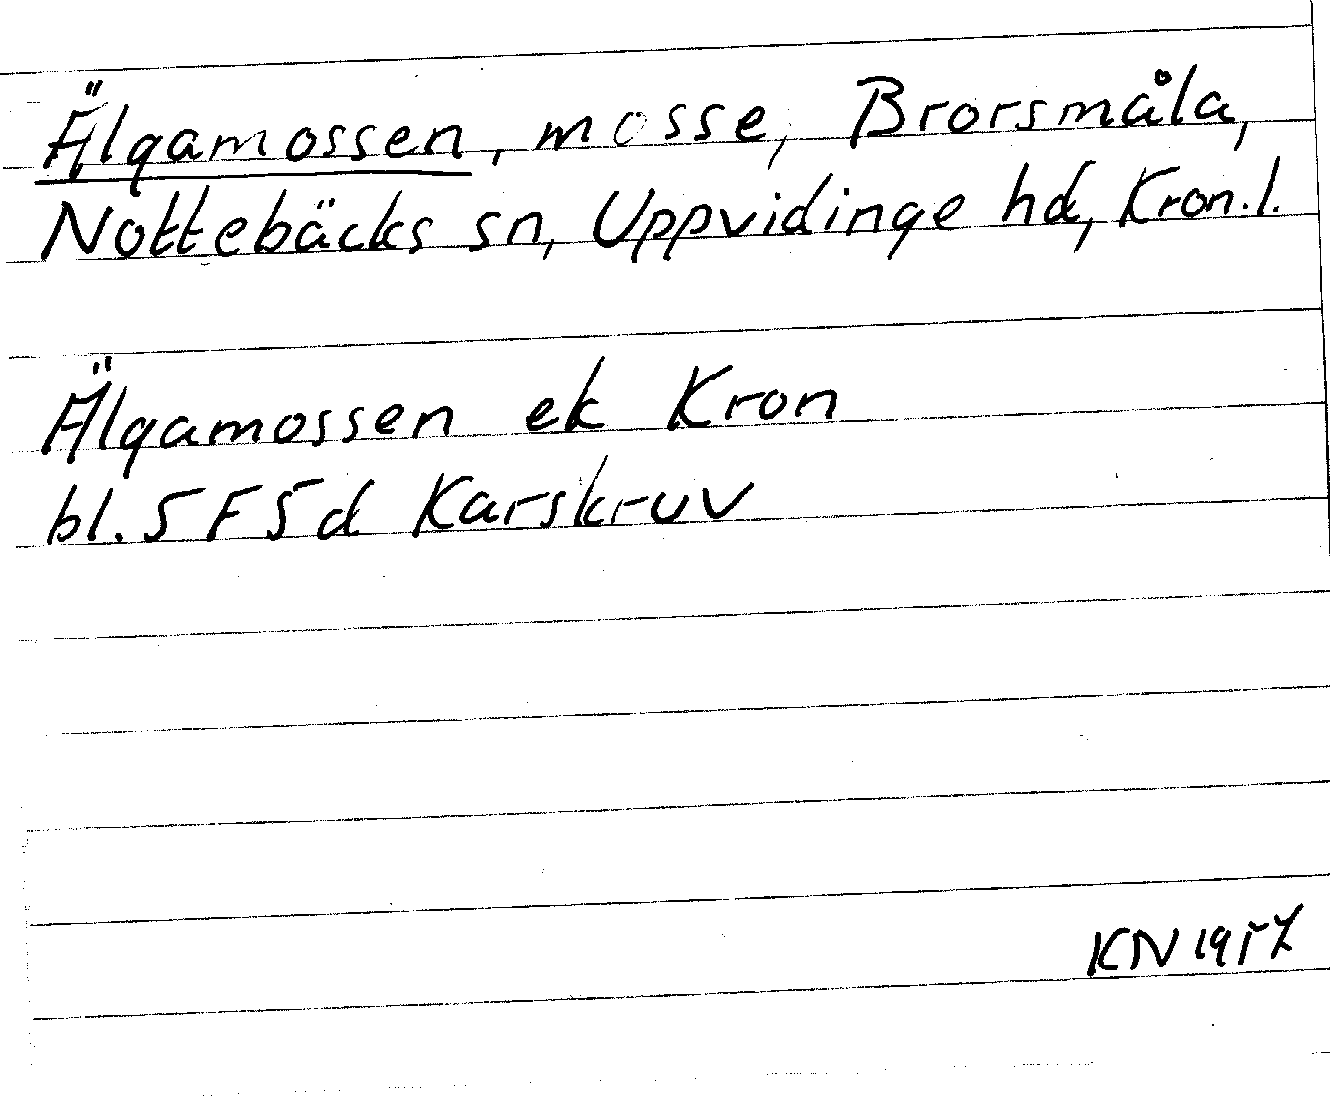 Älgamossen, mosse, Brorsmåla,
Nottebäcks sn, Uppvidinge hd, Kron.l.
Älgamossen ek Kron
bl. 5F5d Karskruv
KN 1957